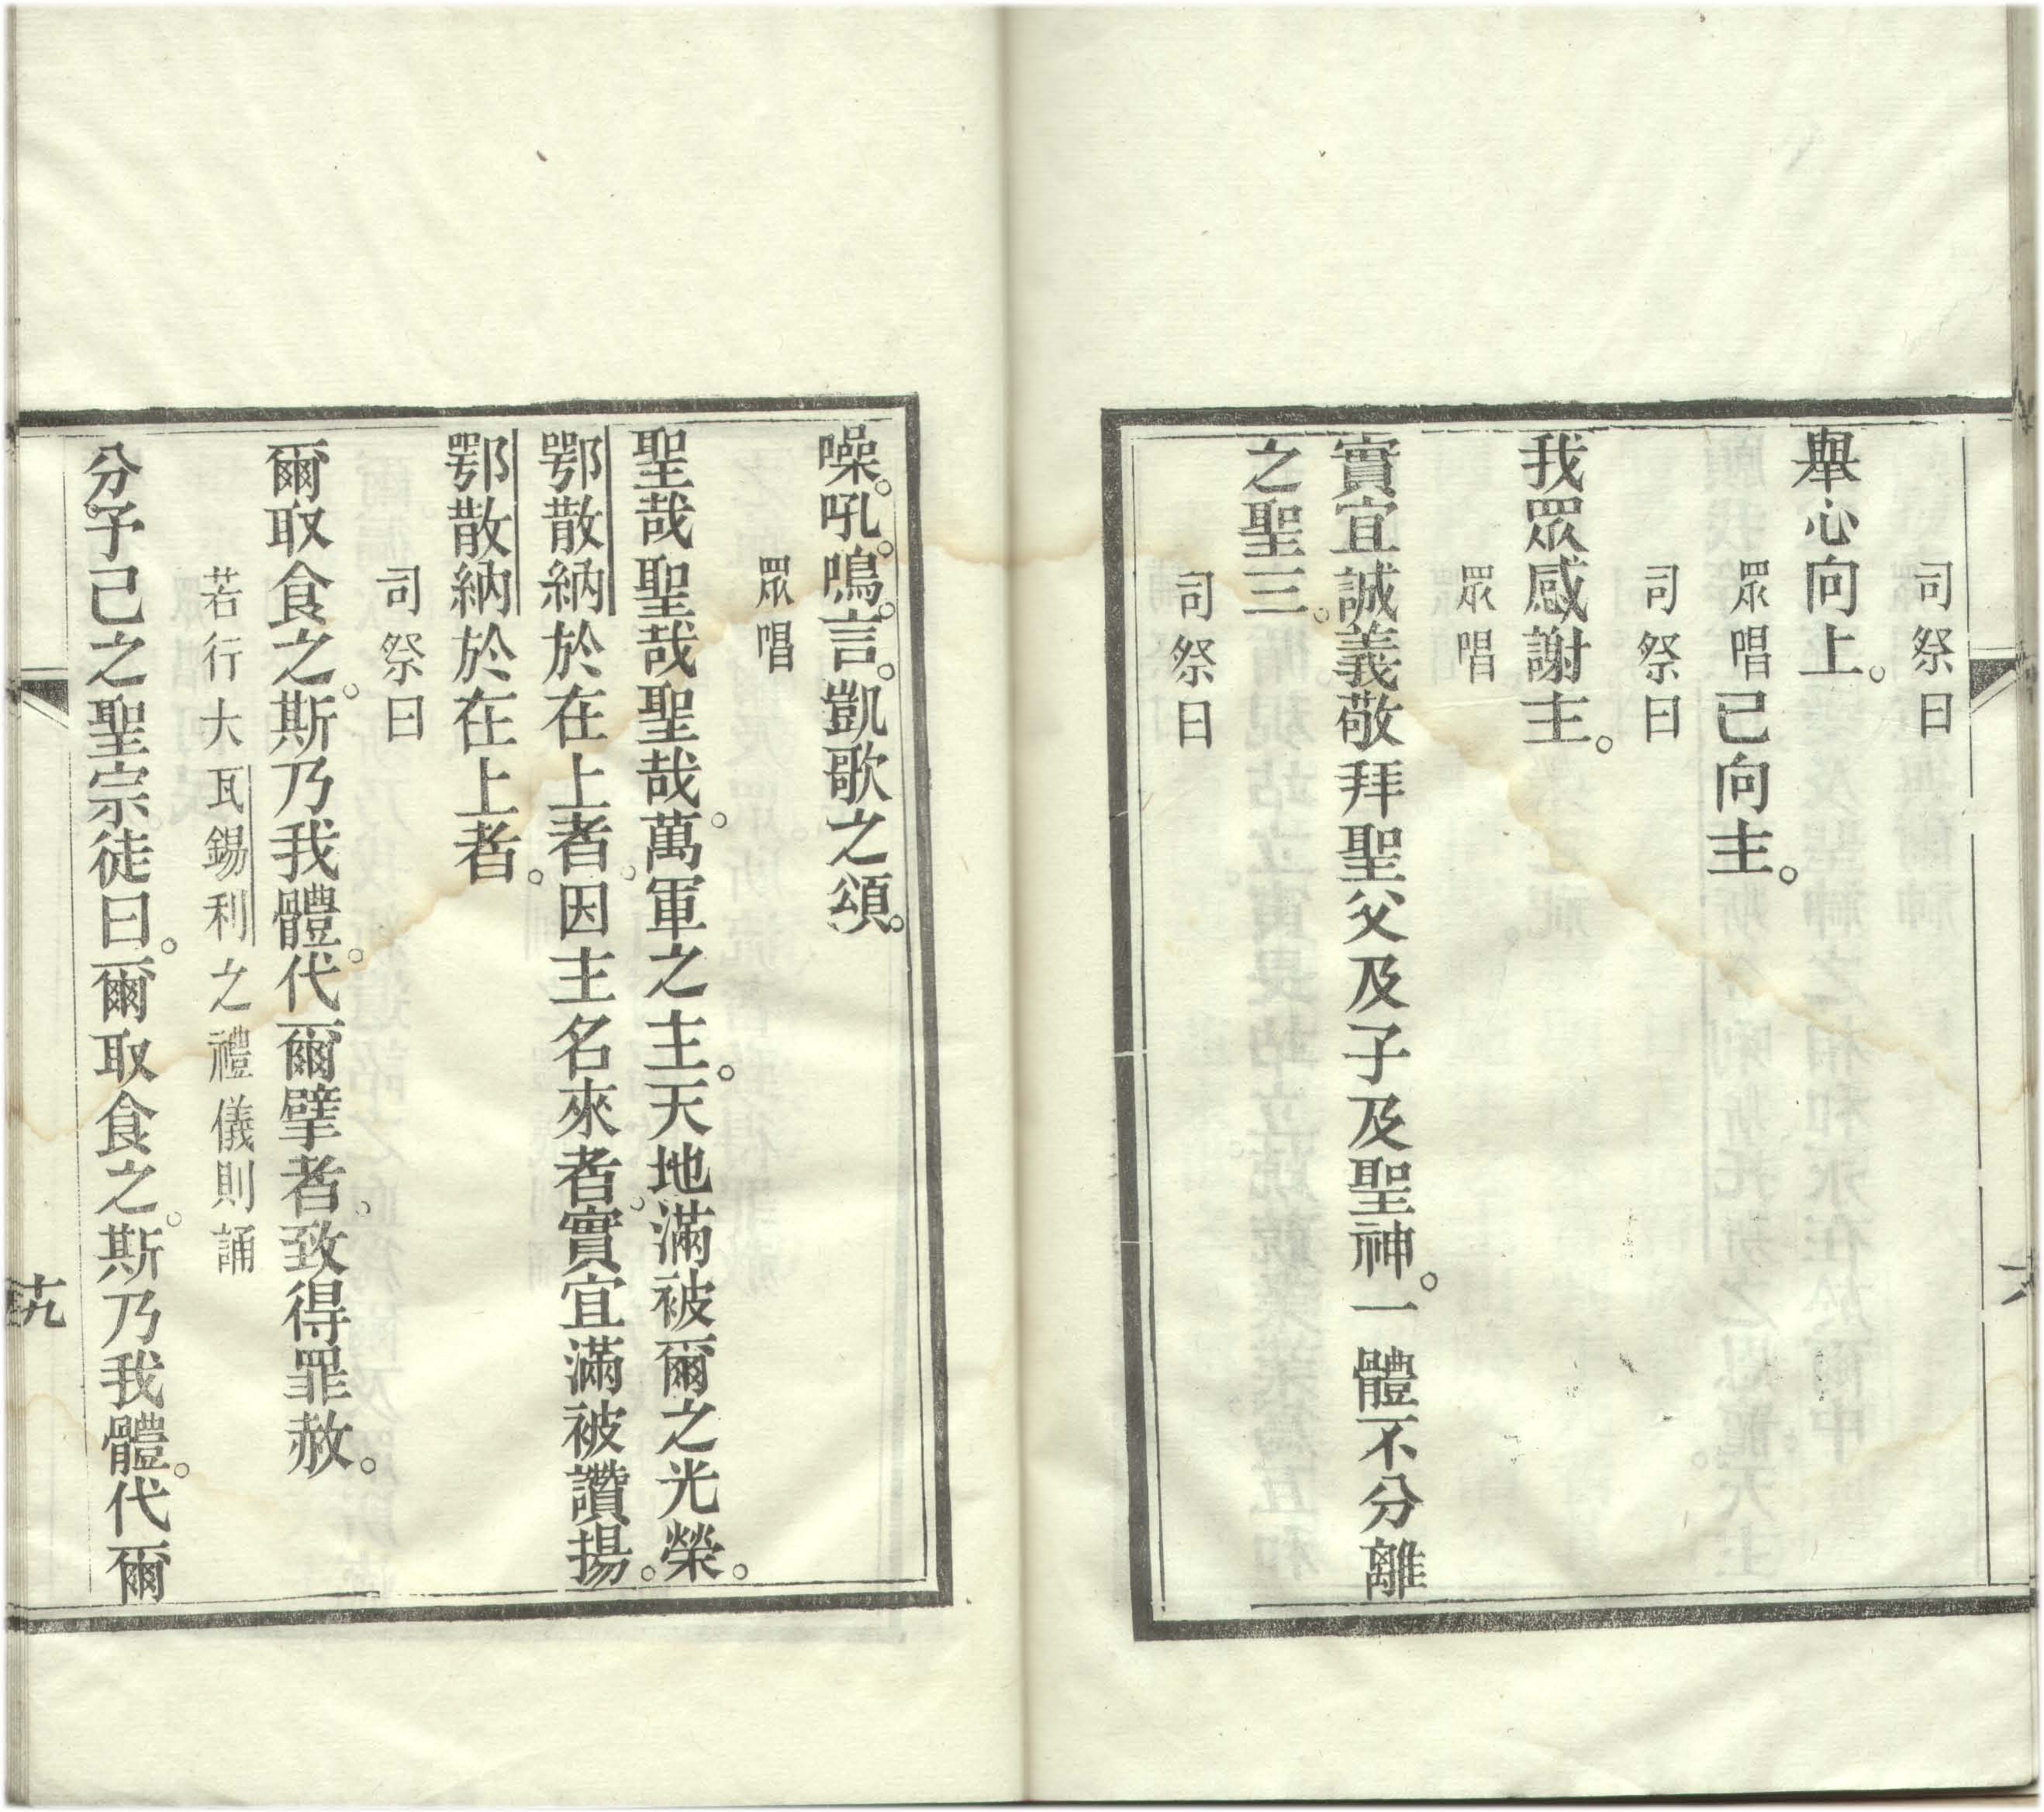 司祭曰
舉心向上。
眾唱 已向主。
司祭曰
我眾感謝主。
眾唱
實宜誠義敬拜聖父及子及聖神。一體不分離
之聖三。
司祭曰
噪。吼。鳴。言。凱歌之頌。
眾唱
聖哉聖哉聖哉。萬軍之主。天地滿被爾之光榮。
鄂散納於在上者。因主名來者。實宜滿被讚揚。
鄂散納於在上者。
司祭曰
爾取食之。斯乃我體。代爾擘者。致得罪赦。
若行大瓦錫利之禮儀則誦
分。予己之聖宗徒曰。爾取食之。斯乃我體。代爾
十九